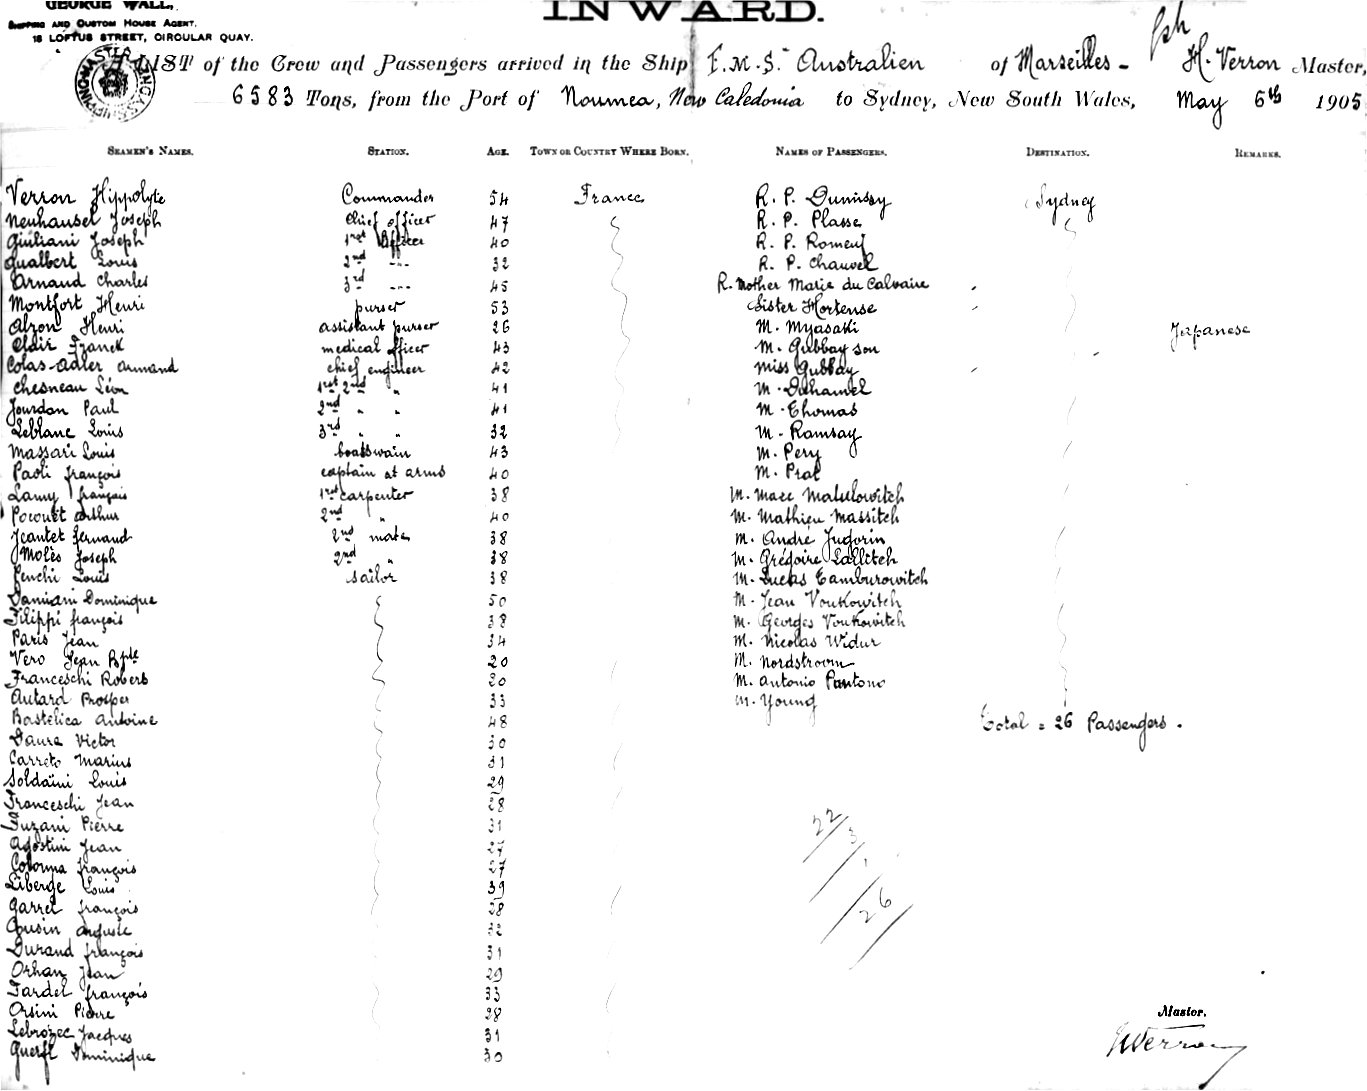 GEORGE WALL,
SHIPPING AND CUSTOM HOUSE AGENT.
18 LOFTUS STREET, CIRCULAR QUAY.
INWARD.
A LIST of the Crew and Passengers arrived in the Ship F.M.S. Australien of Marseilles - H. Verron Master,
6583 Tons, from the Port of Noumea, New Caledonia to Sydney, New South Wales, May 6th 1905
SEAMEN'S NAMES. STATION. AGE. TOWN OR COUNTRY WHERE BORN. NAMES OF PASSENGERS. DESTINATION. REMARKS.
Verron Hippolyte Commander 54 France R. P. Sydney
Neuhausel Joseph Chief officer 47 R. P. Plasse
Giuliani Joseph 1rst officer 40 R. P. Romeuf
Gualbert Louis 2nd 32 R. P. Chauvel
Arnaud Charles 3rd 45 R. Mother Marie du Calvaire
Montfort Henri purser 53 Sister Hortense
Alzon Henri assistant purser 26 M. Myasaki Japanese
Clair Franck medical officer 43 M. Gubbay son
Colas-Adler Armand chief engineer 42 Miss Gubbay
Chesneau Léon 1rst 2nd " 41 M. Duhamel
Jourdan Paul 2nd " " 41 M. Thomas
Leblanc Louis 3rd " " 32 M. Ramsay
Massari Louis boatswain 43 M. Pery
Paoli françois captain at arms 40 M. Prat
Lamy françois 1rst carpenter 38 M. Marc Matulowitch
Arthur 2nd " 40 M. Mathieu Massitch
Jeantet fernand 2nd mate 38 M. André Jugorin
Molès Joseph 2nd " 38 M. Grégoire Lallitch
Fenchi Louis sailor 38 M. Lucas Tamburowitch
Damiani Dominique 50 M. Jean Voukowitch
Filippi françois 38 M. Georges Voukowitch
Paris Jean 34 M. Nicolas Widur
Vero Jean Bpte 20 M. Nordstroom
Franceschi Robert 20 M. Antonio Pantono
Autard Prosper 33 M. Young
Bastelica Antoine 48 Total = 26 Passengers.
Daura Victor 30
Carreto Marius 31
Soldaïni Louis 29
Franceschi Jean 28
Suzani Pierre 31
Agostini Jean 27
Colonna françois 27
Liberge Louis 39
Garrel françois 28
Cousin Auguste 32
Durand françois 31
Orhan Jean 29
Tardel françois 33
Orsini Pierre 28
Lebrozec Jacques 31
Guerfi Dominique 30
22
3
1
26
Master.
HVerron